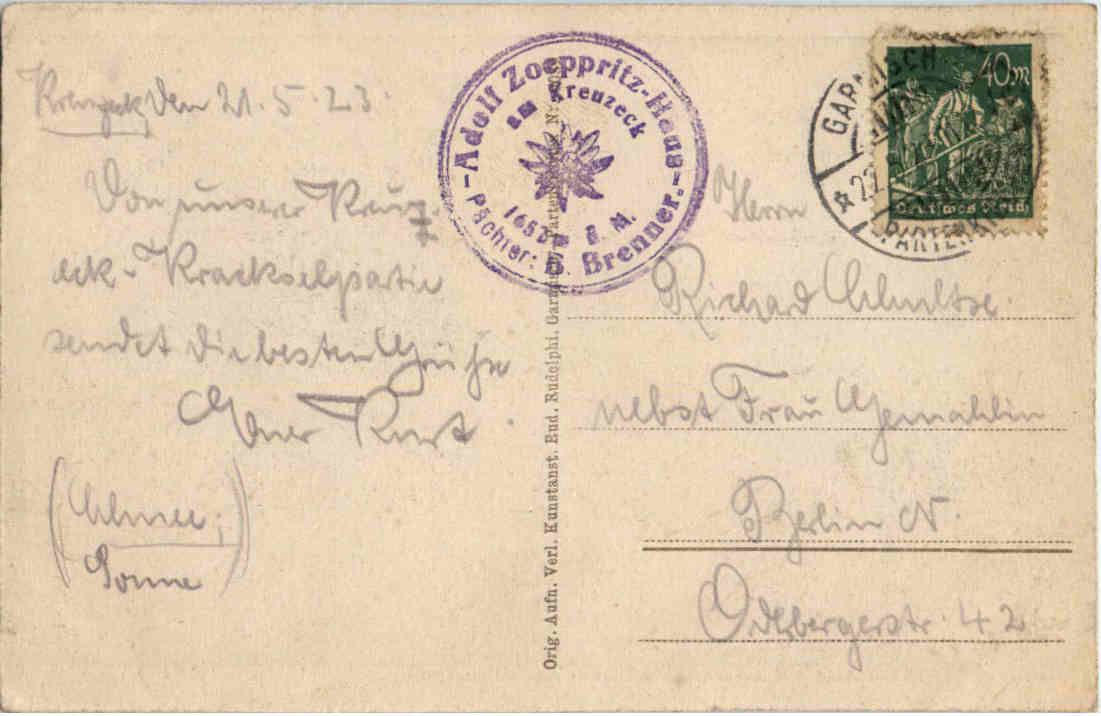 Kreuzeck, den 21.5.23.
Von unserer Kreuz-
eck-Krackselpartie
sendet die besten Grüße
Euer Kurt.
(Schnee,
Sonne)
-Adolf Zoeppritz-Haus-
am Kreuzeck
1652 m ü. M.
Pächter: B. Brenner.
Orig. Aufn. Verl. Kunstanst. Bud. Rudolphi, Garmisch-Partenkirchen N
GARMISCH
PARTENK
40 m
Deutsches Reich
Herrn
Richard Schultze.
nebst Frau Gemahlin
Berlin N.
Oderbergerstr. 42